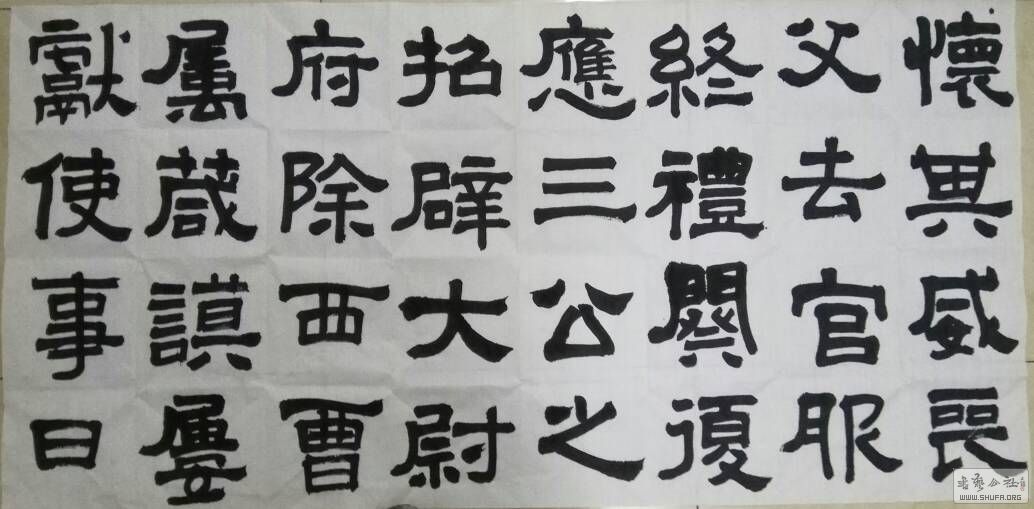 懷其威喪
父去官服
終禮闋復
應三公之
招辟大尉
府除西曹
屬葴謨屢
獻使事日
书艺公社
WWW.SHUFA.ORG